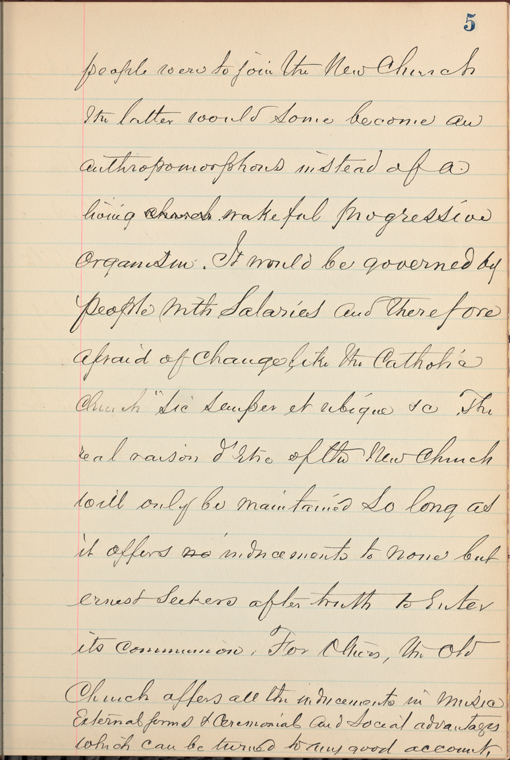 5
people were to join the New Church
the latter would some become an
anthropomorphous instead of a
living church wakeful progressive
organism. It would be governed by
people with Salaries and therefore
afraid of change, like the Catholic
Church "Sic semper et ubique &c The
real raison d'Etre of the New Church
will only be maintained so long as
it offers no inducements to none but
ernest Seekers after truth to Enter
its communion. For Others, the Old
Church offers all the inducements in music
External forms & Ceremonial and Social advantages
which can be turned to any good account,